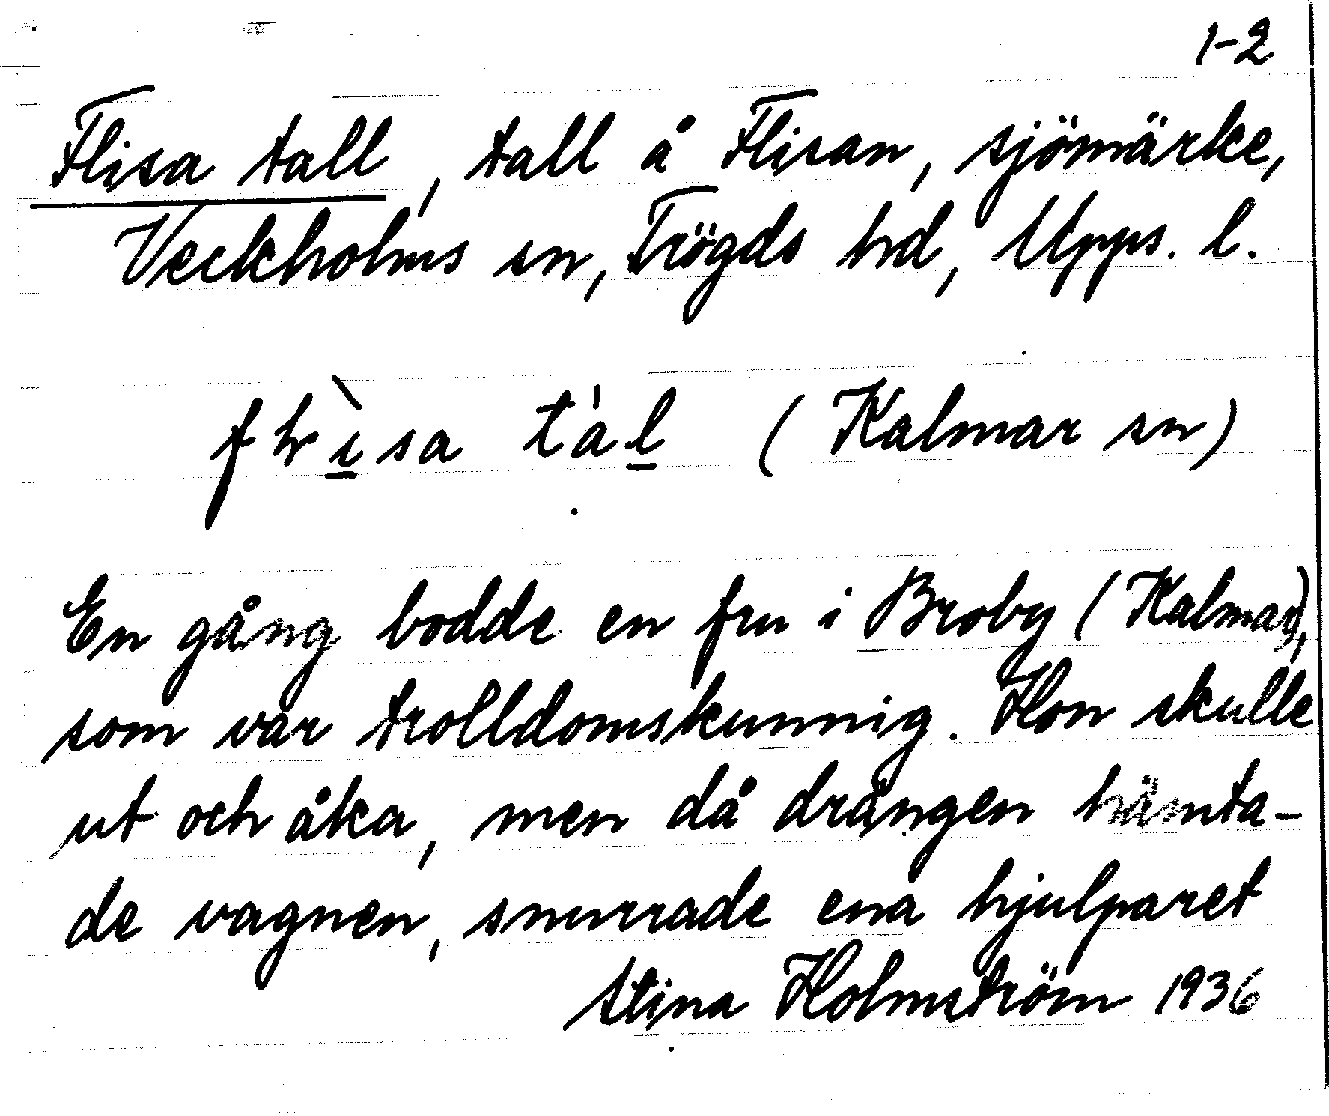 1-2
Flisa tall, tall å Flisan, sjömärke,
Veckholms sn, Trögds hd, Upps. l.
(Kalmar sn)
En gång bodde en fru i Broby (Kalmar),
som var trolldomskunnig. Hon skulle
ut och åka, men då drängen hämta-
de vagnen, snurrade ena hjulparet
Stina Holmström 1936